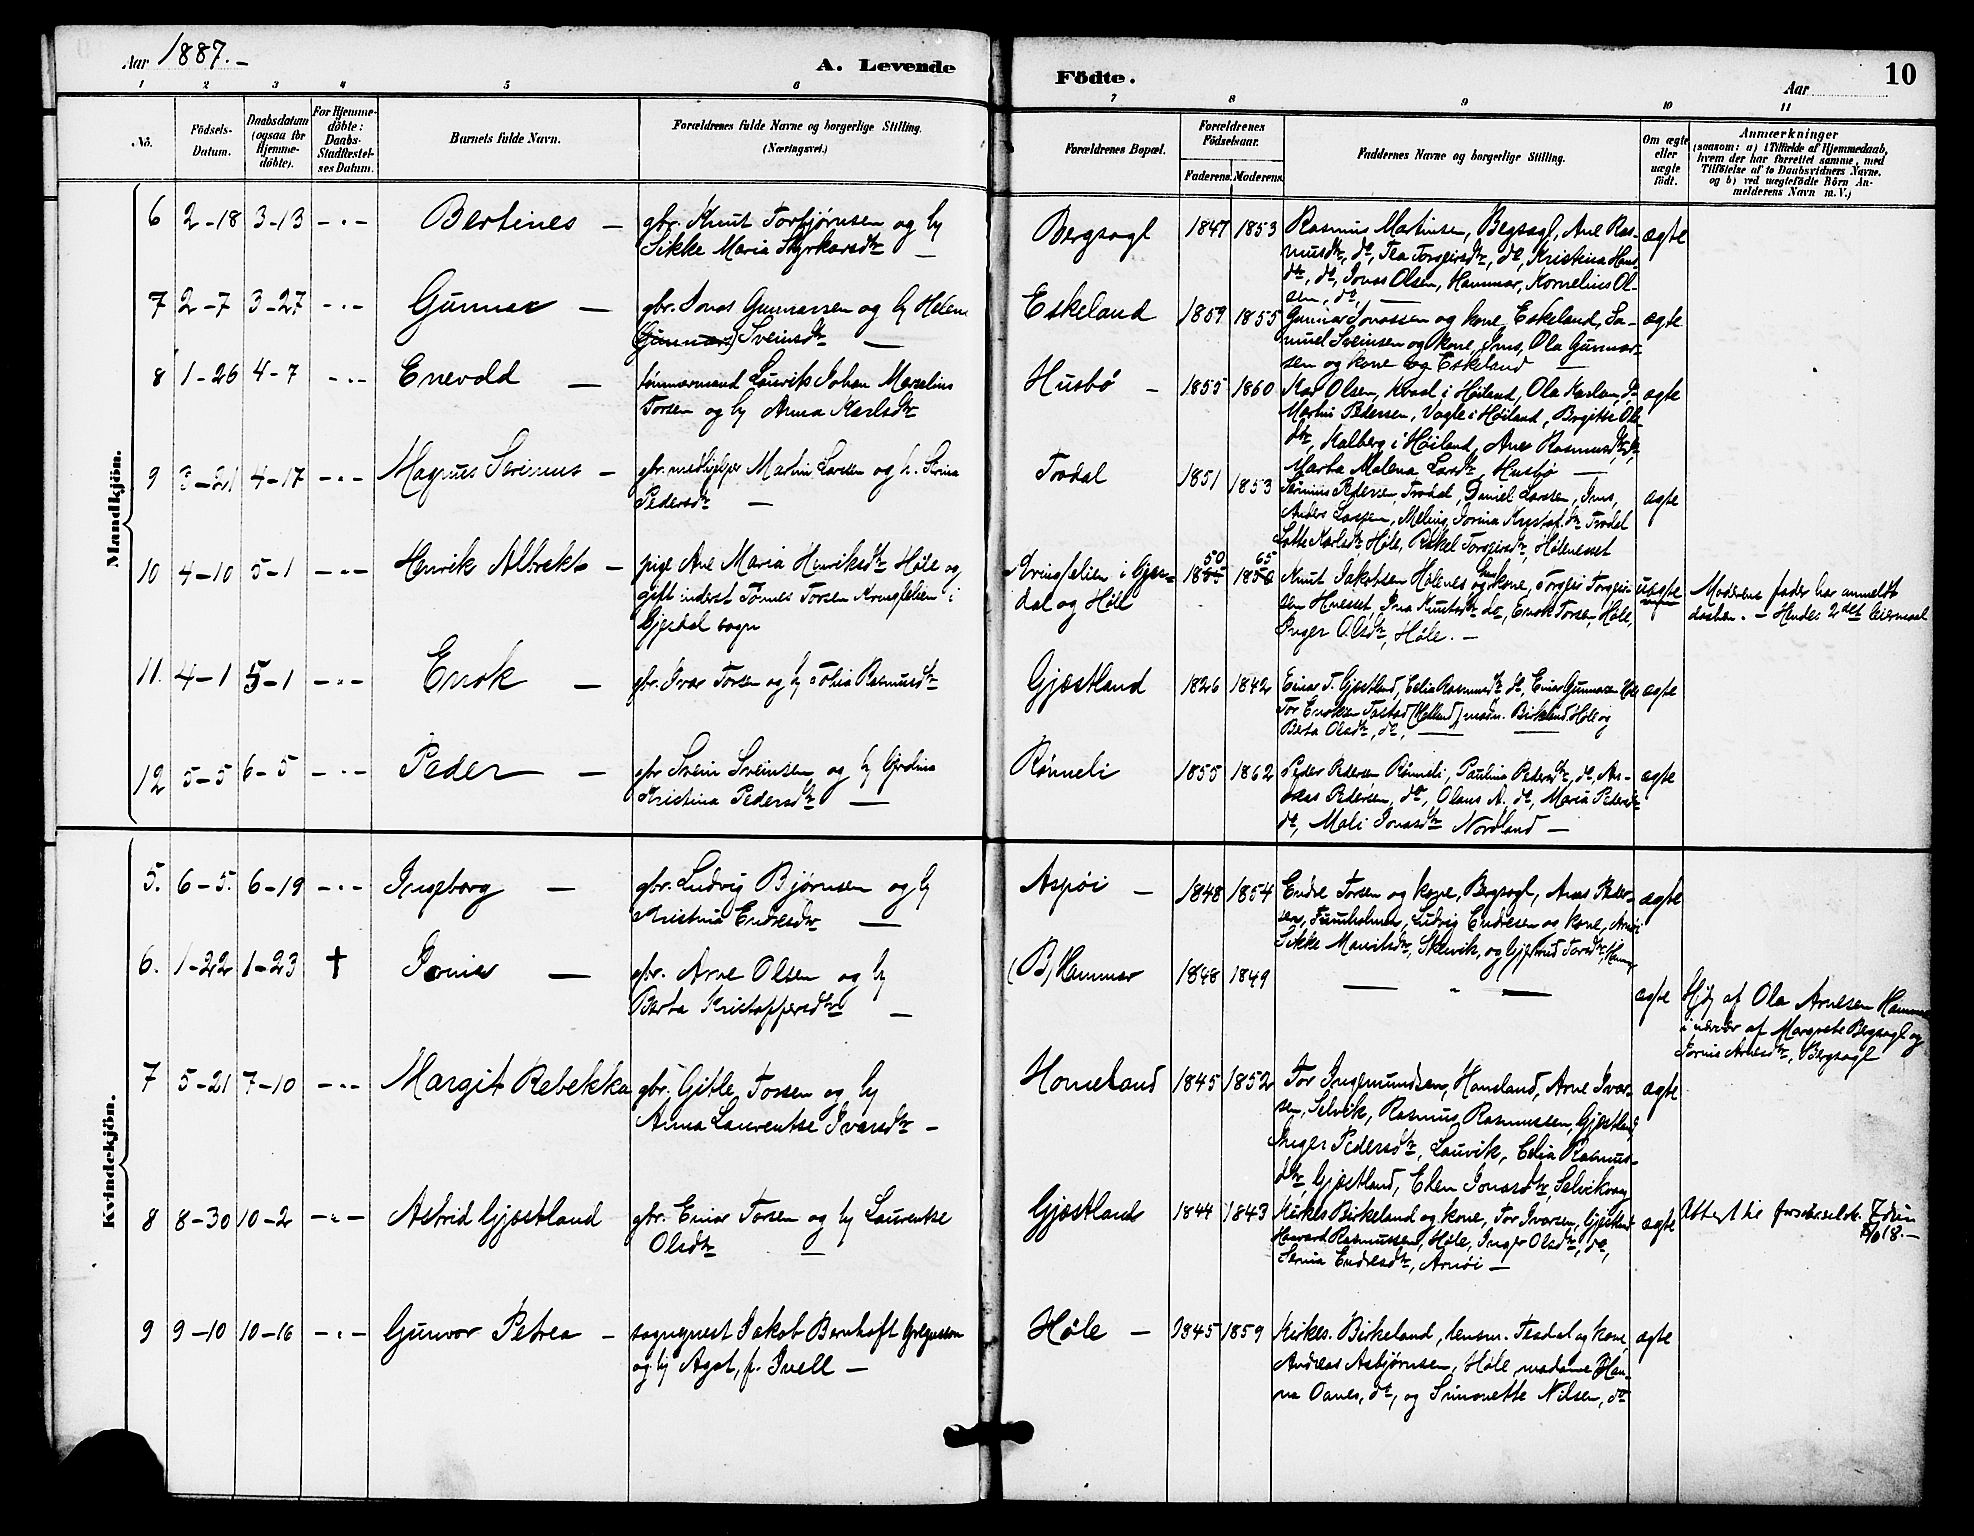 Aar 1887.-
A. Levende
Födte.
Aar
10
1 2 3 4 5 6 7 8 9 10 11
No.
Födsels-
Datum.
Daabsdatum
(ogsaa for
Hjemme-
döbte).
For Hjemme-
döbte:
Daabs-
Stadfæstel-
ses Datum.
Barnets fulde Navn.
Forældrenes fulde Navne og borgerlige Stilling.
(Næringsvei.)
Forældrenes Bopæl.
Forældrenes
Födselsaar.
Faderens. Moderens.
Faddernes Navne og borgerlige Stilling.
Om ægte
eller
uægte
födt.
Anmærkninger
(saasom: a) i Tilfælde af Hjemmedaab,
hvem der har forrettet samme, med
Tilföielse af to Daabsvidners Navne,
og b) ved uægtefödte Börn An-
melderens Navn m. V.)
Mandkjön.
6 2-18 3-13 - " - Bertines -
gbr. Knut Torbjørnsen og hu
Sikke Maria Styrkarsdtr -
Bergsagl 1847 1853
Rasmus Martinsen, Bergsagl, Ane Ras-
musdtr, do, Tea Torgeirsdtr, do, Kristina Hans
dtr, do, Jonas Olsen, Hammar, Kornelius Ol-
sen, do, -
ægte
7 2-7 3-27 - " - Gunnar -
gbr. Jonas Gunnarsen og hu Helene
(Gunnars) Sveinsdtr -
Eskeland 1859 1855
Gunnar Jonassen og kone, Eskeland, Sa-
muel Sveinsen og kone, Ims, Ola Gunnar-
sen og kone Eskeland -
ægte
8 1-26 4-7 - " - Enevold -
tømmermand Lauvik Johan Marselius
Torsen og hu Anna Karlsdtr
Husbø - 1855 1860
Kar Olsen, Kvaal i Høiland, Ola Karlsen, do
Martin Pedersen, Vagle i Høiland, Birgitte Ols-
dtr, Kalberg i Høiland, Ane Rasmusdtr, do,
Marta Malena Larsdtr, Husbø -
ægte
9 3-21 4-17 - " - Magnus Serinius -
gbr. medhjelper Martin Larsen og h. Serina
Pedersdtr -
Trodal 1851 1853
Serinius Pedersen, Trodal, Daniel Larsen, Ims,
Anders Larsen, Meling, Jorina Krystaf.dtr Trodal
Lotte Karlsdtr Høle, Rakel Torgeirsdtr, Hølenesset
ægte
10 4-10 5-1 - " - Henrik Albrekt -
pige Ane Maria Henriksdtr Høle og
gift inderst Tønnes Torsen Kringlelien i
Gjesdal sogn
Kringlelien i Gjes-
dal og Høle
50 65
Knut Jakobsen Hølenes og kone, Torgeir Torgeir-
sen Hnesset, Ina Knutsdtr do, Enok Torsen, Høle,
Inger Olsdtr, Høle. -
uægte
Moderens fader har anmeldt
daaben. - Hendes 2det leiermaal
11. 4-1 5-1 - " - Enok -
gbr. Ivar Torsen og hu Tolia Rasmusdtr
Gjæstland 1826 1842
Einar T. Gjæstland, Celia Rasmusdtr do, Einar Gunnarsen Høle
Tor Enoksen Tastad (Helland), madm. Birkeland Høle og
Berta Olsdtr, do, -
ægte
12 5-5 6-5 - " - Peder -
gbr Svein Sveinsen og hu Gjedina
Kristina Pedersdtr -
Rønneli 1855 1862
Peder Pedersen Rønneli, Paulina Pedersdtr, do, An-
dreas Pedersen, do, Olaus A. do, Maria Pedersdtr
do, Mali Jonasdtr Nordland -
ægte
Kvindekjön.
5. 6-5. 6-19 - " - Ingeborg -
gbr. Ludvig Bjørnsen og hu
Kristina Endresdtr -
Aspøi - 1848 1854
Endre Torsen og kone, Bergsagl, Arnes Peder-
sen, Tuneholmen, Ludvig Endresen og kone, Arnøi
Sikke Mauritsdtr, Skurvik, og Gjertrud Torsdtr, Hammar
ægte
6. 1-22 1-23 † Jorine -
gbr. Arne Olsen og hu
Berta Kristoffersdtr -
(B) Hammar 1848 1849
- " -
ægte
Hjd af Ola Arnesen Hammar
i nærvær af Margrete Bergsagl og
Jorine Arnesdtr, Bergsagl
7 5-21 7-10 - " - Margit Rebekka
gbr. Gitle Torsen og hu
Anna Laurentse Ivarsdtr -
Homeland 1845 1852
Tor Ingemundsen, Homeland, Arne Ivar-
sen, Selvik, Rasmus Rasmussen, Gjæstland
Inger Pedersdtr, Lauvik, Celia Rasmus-
dtr, Gjæstland, Elen Jonasdtr, Selvikvaag
ægte
8 8-30 10-2 - " - Astrid Gjæstland
gbr. Einar Torsen og hu Laurentse
Olsdtr -
Gjæstland 1844 1843
Kirkes Birkeland og kone, Tor Ivarsen, Gjæstland
Haavard Rasmussen, Høle, Inger Olsdtr, do,
Serina Endresdtr, Arnøi -
ægte
Attest til
18.-
9 9-10 10-16 - " - Gunvor Petrea -
sogneprest Jakob Bernhoft Gregussen
og hu Agot, f. Ivell -
Høle - 1845 1859
Kirkes. Birkeland, lensm. Tesdal og kone,
Andreas Asbjørnsen, Høle, madame Han-
na Oanes, do, og Simonette Nilsen, do
ægte